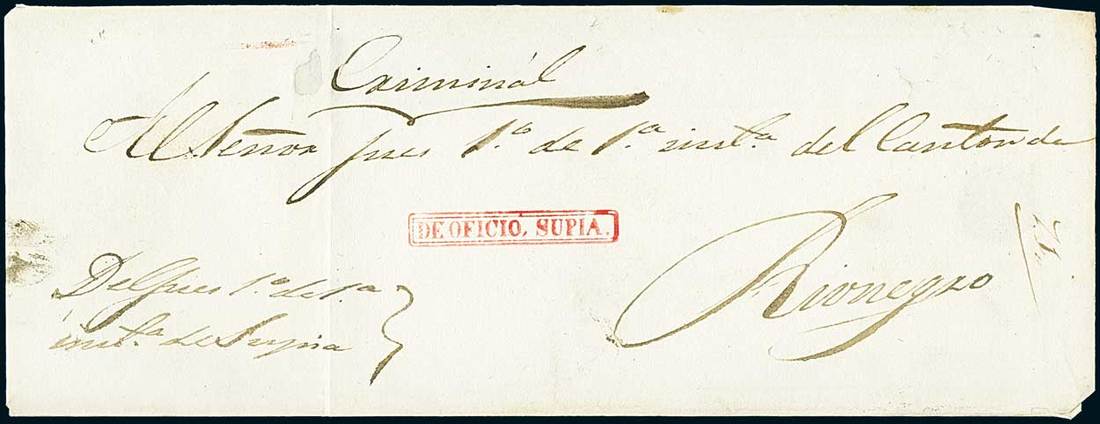 Criminal
Al Señor Jues 1.º de 1.ª inst.ª del Canton de
DE OFICIO, SUPIA.
Rionegro
Del Jues 1.º de 1.ª
inst.ª de Supia